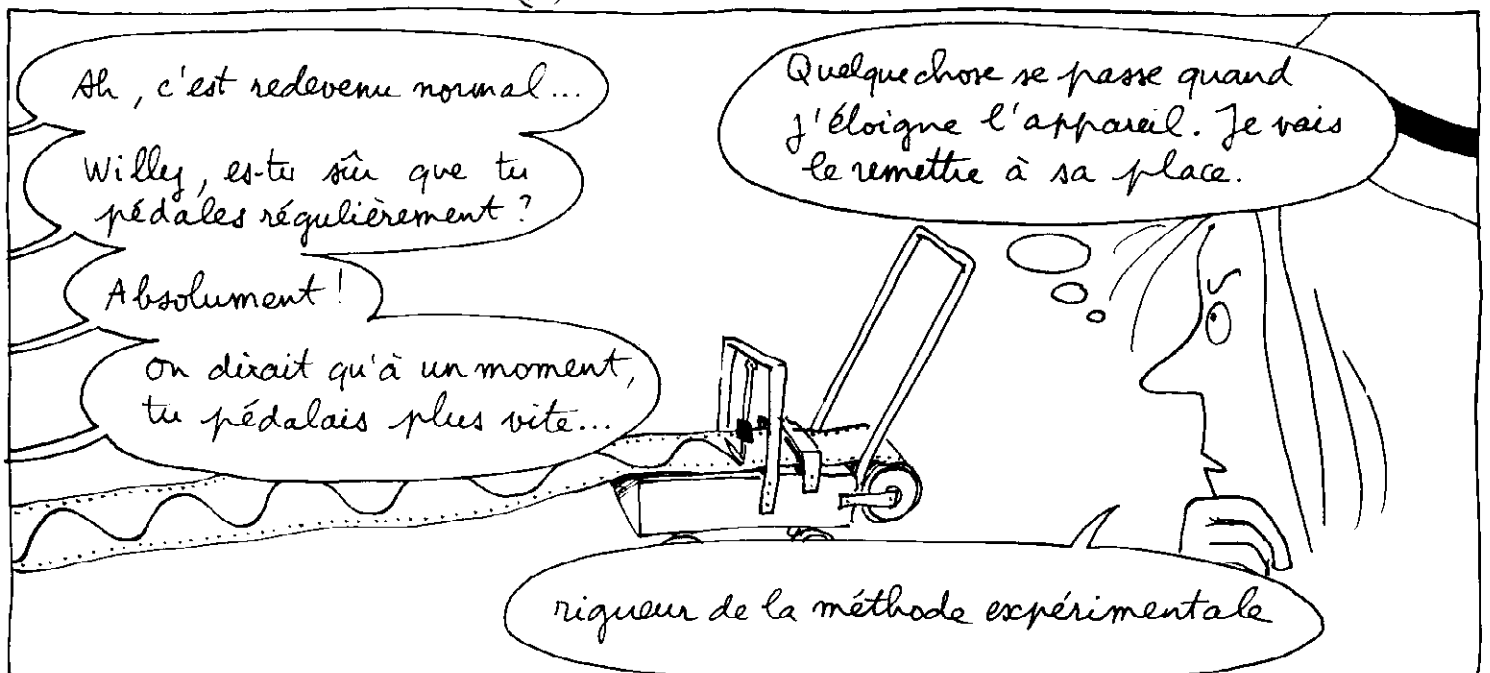 Ah, c'est redevenu normal...
Willy, es-tu sûr que tu
pédales régulièrement ?
Absolument !
on dirait qu'à un moment,
tu pédalais plus vite...
Quelquechose se passe quand
j'éloigne l'appareil. Je vais
le remettre à sa place.
rigueur de la méthode expérimentale